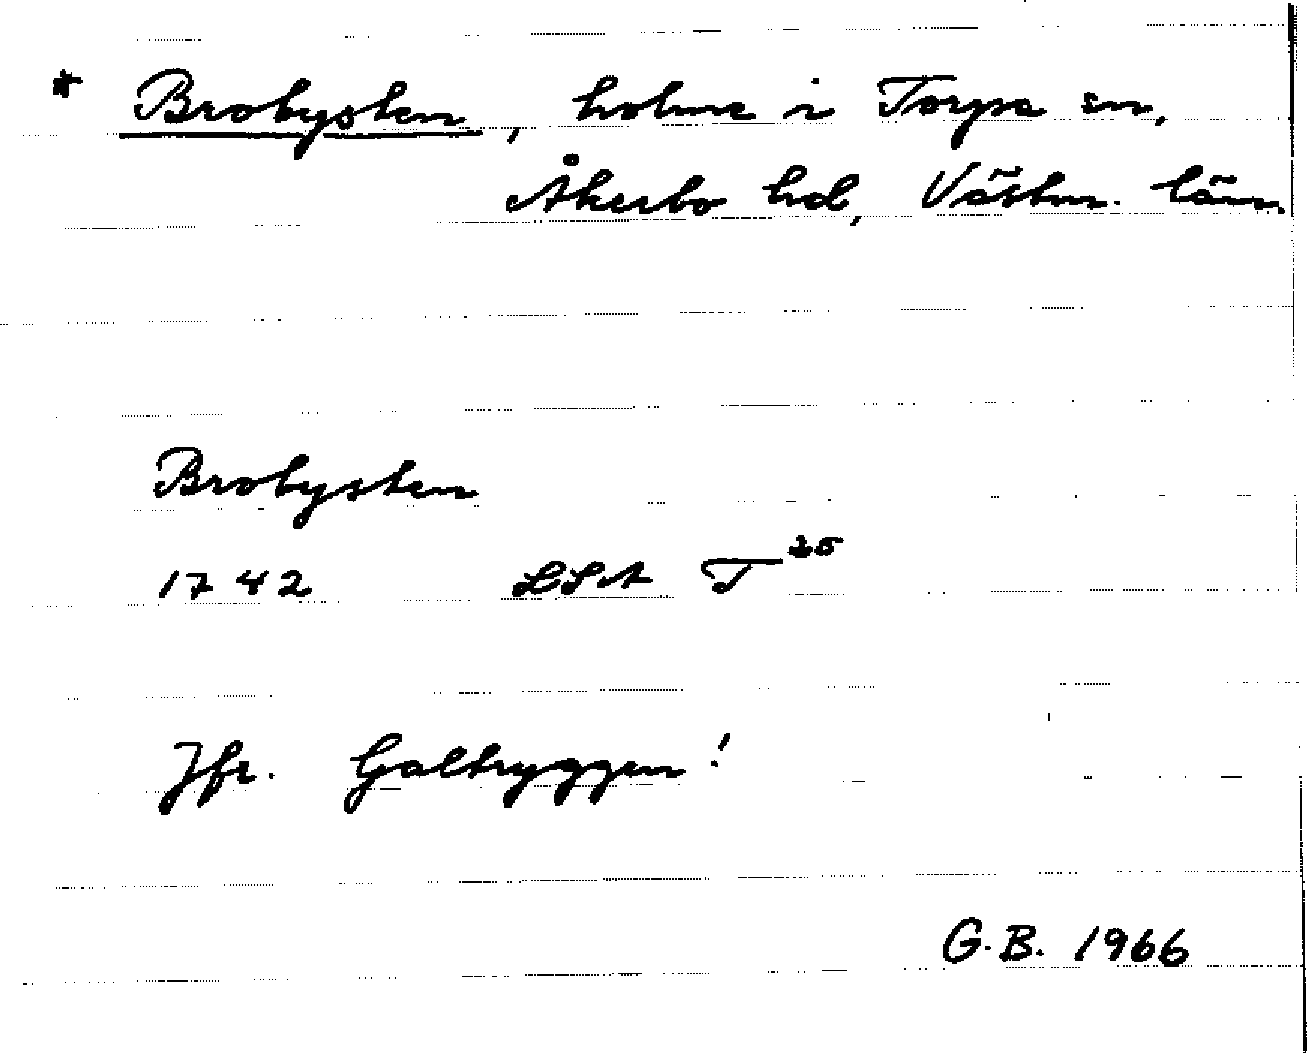 * Brobysten, holme i Torpa sn,
Åkerbo hd, Västm. län.
Brobysten
1742 LSA T 25
Jfr. Galtryggen!
G.B. 1966